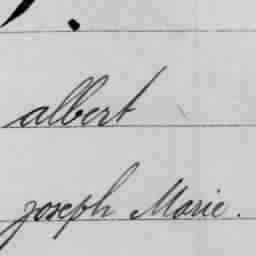 albert
joseph Marie.